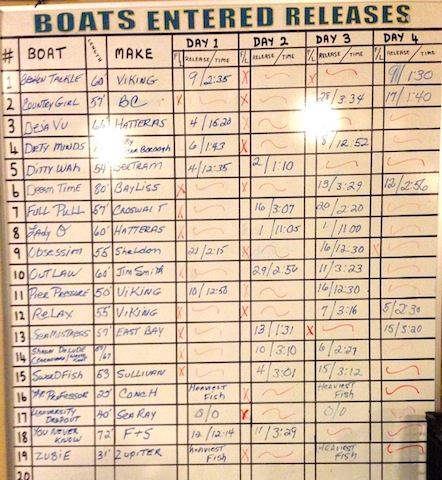 BOATS ENTERED RELEASES
# BOAT LENGTH MAKE DAY 1 DAY 2 DAY 3 DAY 4
F/L RELEASE/TIME F/L RELEASE/TIME F/L RELEASE/TIME F/L RELEASE/TIME
1 TACKLE 60' VIKING 9/2:35 X X 9/1:30
2 COUNTRY GIRL 57' BC X X 3:34 17/1:40
3 DEJA VU HATTERAS 4/15:20
4 DIRTY MINDS 6/1:43 X 8/12:52
5 DITTY WAH 54' BERTRAM 4/12:35 2/1:10
6 DREAM TIME 80' BAYLISS X X 13/3:29 12/2:56
7 FULL PULL 57' CROSWAIT 16/3:07 20/2:20
8 Lady O 60' HATTERAS 1/11:05 1/11:00
9 OBSESSION 55' Sheldon 21/2:15 X 16/12:30 X
10 OUTLAW 60' JIM SMITH 29/2:56 11/3:23
11 PIER PRESSURE 50' VIKING 10/12:58 16/12:30
12 RELAX 55' VIKING X X 7/3:16 5/2:30
13 SEAMISTRESS 57' EAST BAY X 13/1:31 X 15/3:20
14 10/3:10 6/2:27
15 SWORDFISH 53' SULLIVAN X 4/3:01 15/3:12
16 PROFESSOR 22' CONCH HEAVIEST FISH X HEAVIEST FISH
17 UNIVERSITY DROPOUT 40' SEA RAY 0/0 X 0/0
18 YOU NEVER KNOW 72' F+S 12/12:14 11/3:29
19 ZUBIE 31' JUPITER HEAVIEST FISH HEAVIEST FISH
20